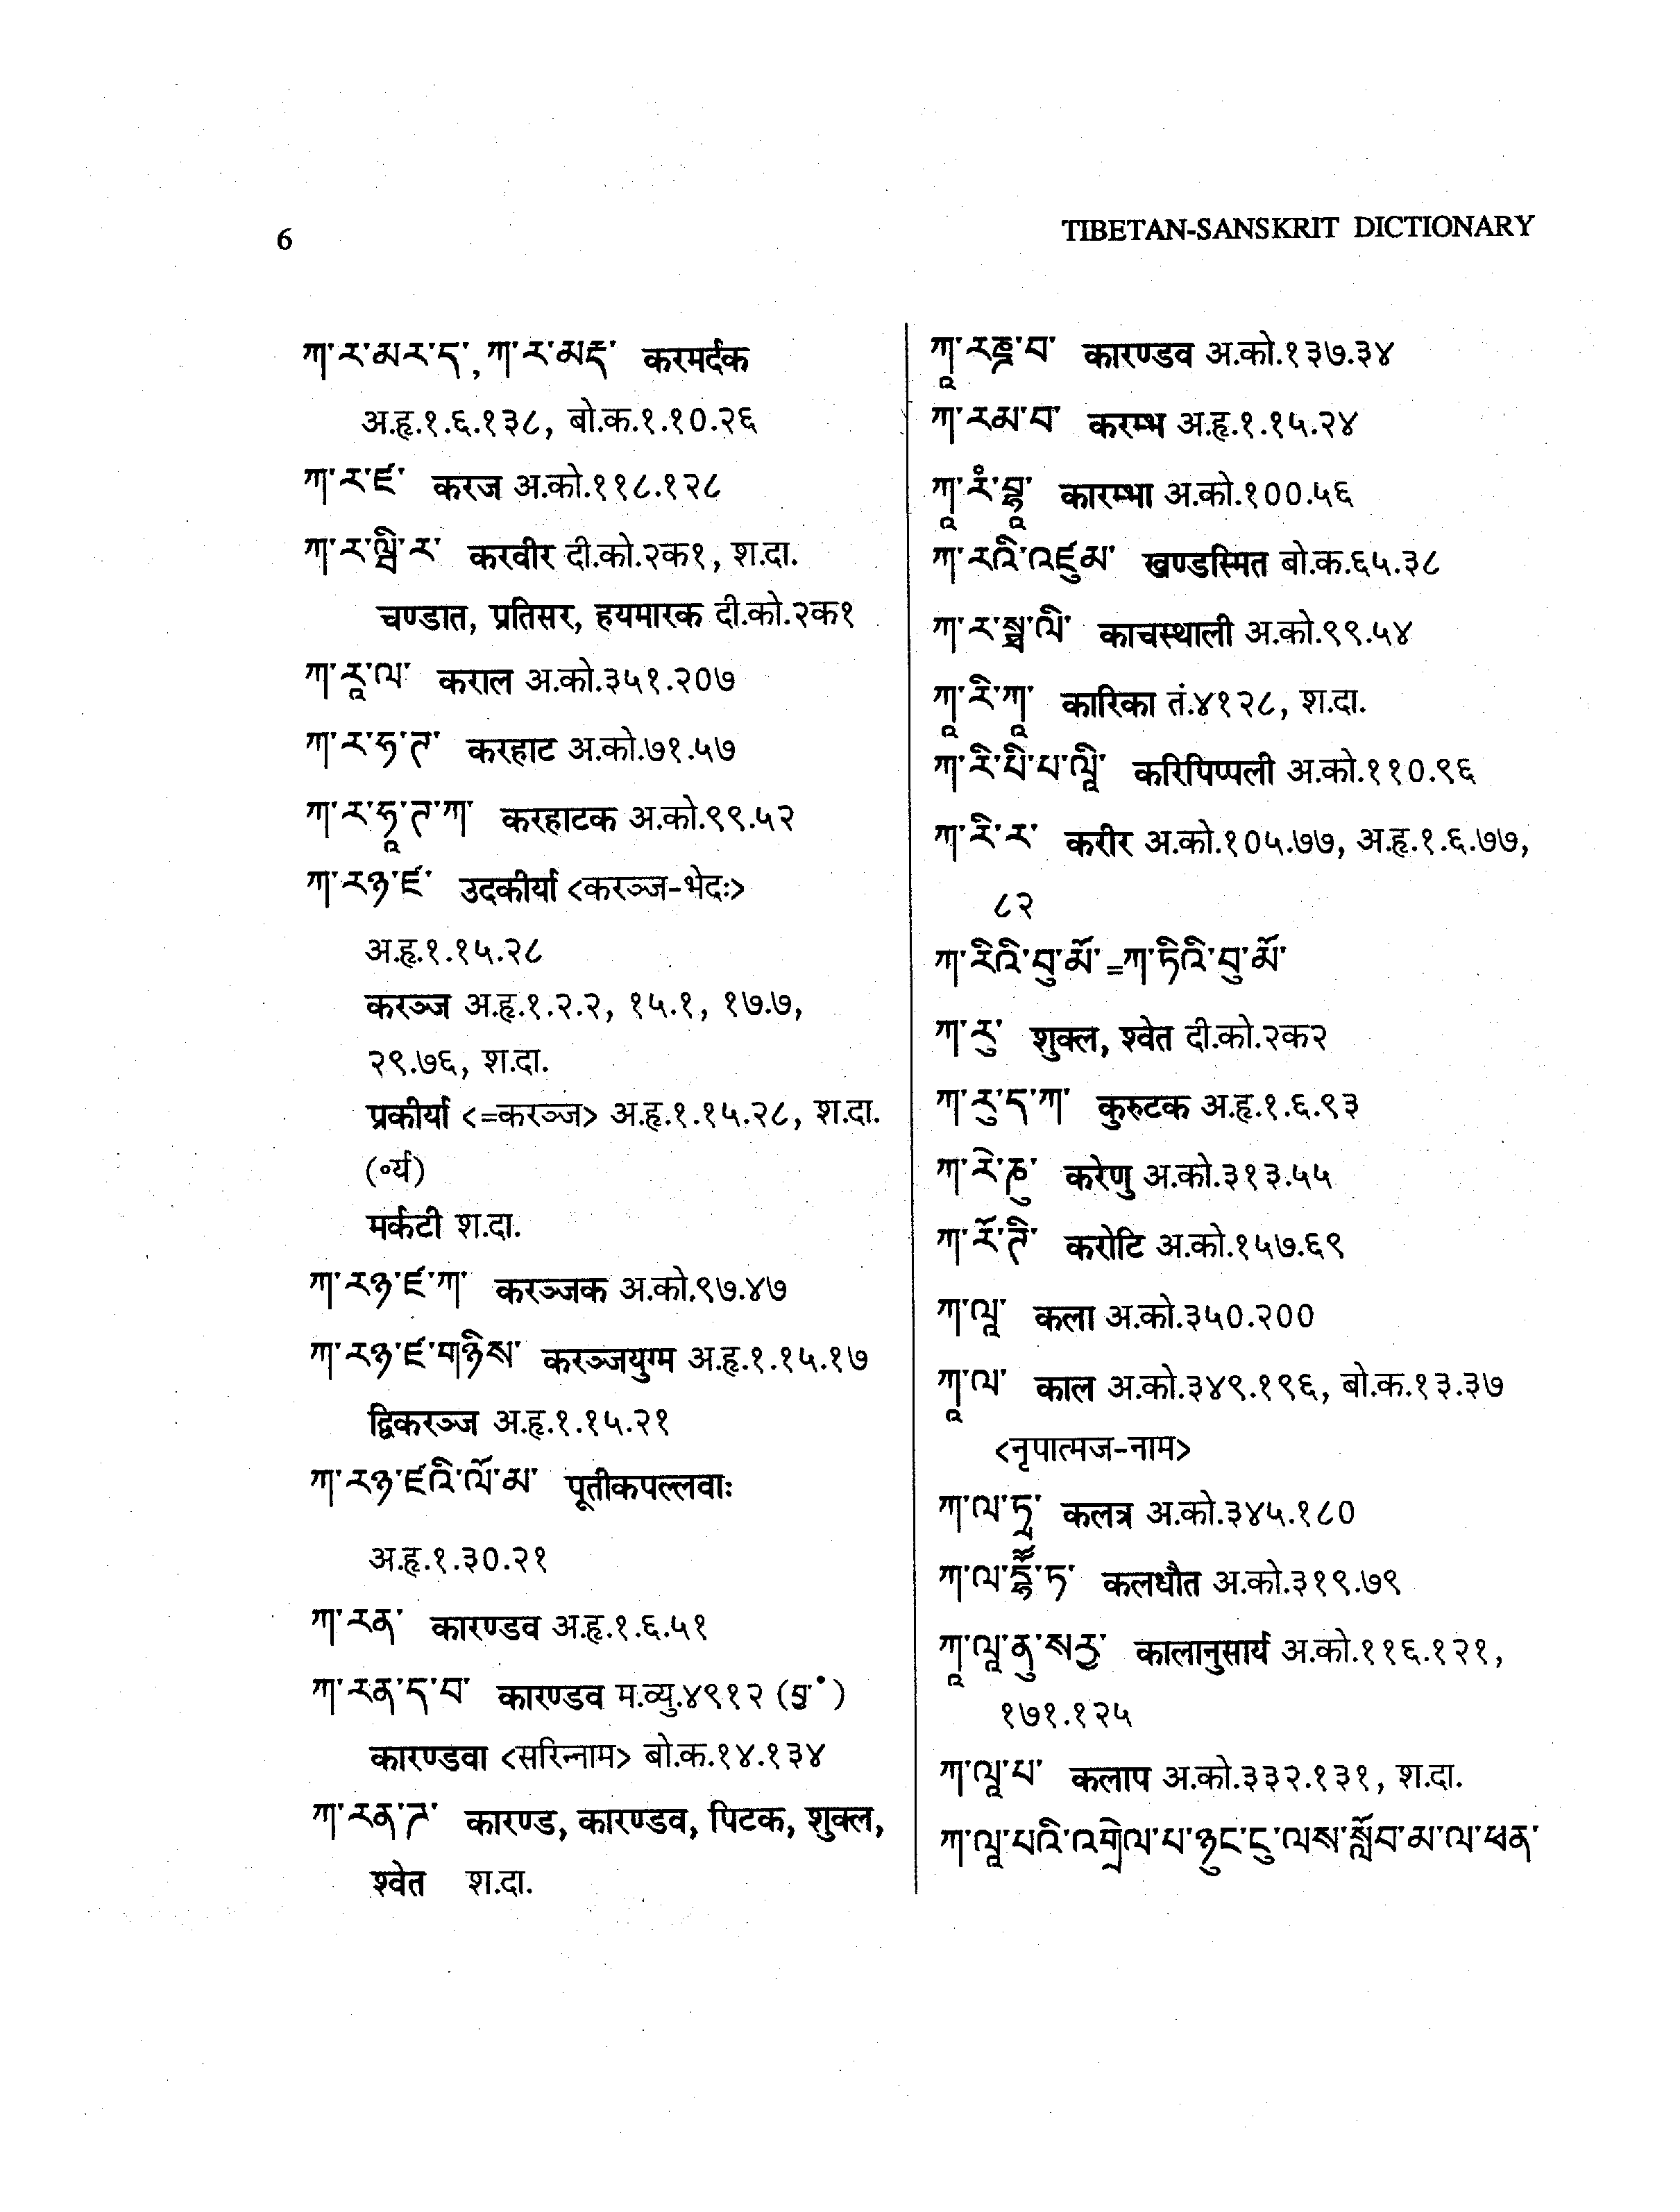 6
TIBETAN-SANSKRIT DICTIONARY
ཀ་ར་མར་ད་, ཀ་ར་མརྡ་ करमर्दक
अ.हृ.१.६.१३८, बो.क.१.१०.२६
ཀ་ར་ཛ་ करज अ.को.११८.१२८
ཀ་ར་ལྦི་ར་ करवीर दी.को.२क१, श.दा.
चण्डात, प्रतिसर, हयमारक दी.को.२क१
ཀ་རཱ་ལ་ कराल अ.को.३५१.२०७
ཀ་ར་ཧ་ཊ་ करहाट अ.को.७१.५७
ཀ་ར་ཧཱ་ཊ་ཀ་ करहाटक अ.को.९९.५२
ཀ་རཉ་ཛ་ उदकीर्या <करञ्ज-भेदः>
अ.हृ.१.१५.२८
करञ्ज अ.हृ.१.२.२, १५.१, १७.७,
२९.७६, श.दा.
प्रकीर्या <=करञ्ज> अ.हृ.१.१५.२८, श.दा.
(॰र्य)
मर्कटी श.दा.
ཀ་རཉ་ཛ་ཀ་ करञ्जक अ.को.९७.४७
ཀ་རཉ་ཛ་གཉིས་ करञ्जयुग्म अ.हृ.१.१५.१७
द्विकरञ्ज अ.हृ.१.१५.२१
ཀ་རཉ་ཛའི་ལོ་མ་ पूतीकपल्लवाः
अ.हृ.१.३०.२१
ཀ་རན་ कारण्डव अ.हृ.१.६.५१
ཀ་རན་ད་བ་ कारण्डव म.व्यु.४९१२
कारण्डवा <सरिन्नाम> बो.क.१४.१३४
ཀ་རན་ཌ་ कारण्ड, कारण्डव, पिटक, शुक्ल,
श्वेत श.दा.
ཀཱ་རཎྜ་བ་ कारण्डव अ.को.१३७.३४
ཀ་རམ་བ་ करम्भ अ.हृ.१.१५.२४
ཀཱ་རཾ་བྷཱ་ कारम्भा अ.को.१००.५६
ཀ་རའི་འཛུམ་ खण्डस्मित बो.क.६५.३८
ཀ་ར་སྠ་ལི་ काचस्थाली अ.को.९९.५४
ཀཱ་རི་ཀཱ་ कारिका तं.४१२८, श.दा.
ཀ་རི་པི་པ་ལཱི་ करिपिप्पली अ.को.११०.९६
ཀ་རི་ར་ करीर अ.को.१०५.७७, अ.हृ.१.६.७७,
८२
ཀ་རིའི་བུ་མོ་=ཀ་ཏིའི་བུ་མོ་
ཀ་རུ་ शुक्ल, श्वेत दी.को.२क२
ཀ་རུ་ད་ཀ་ कुरुटक अ.हृ.१.६.९३
ཀ་རེ་ཎུ་ करेणु अ.को.३१३.५५
ཀ་རོ་ཊི་ करोटि अ.को.१५७.६९
ཀ་ལཱ་ कला अ.को.३५०.२००
ཀཱ་ལ་ काल अ.को.३४९.१९६, बो.क.१३.३७
<नृपात्मज-नाम>
ཀ་ལ་ཏྲ་ कलत्र अ.को.३४५.१८०
ཀ་ལ་དྷཽ་ཏ་ कलधौत अ.को.३१९.७९
ཀཱ་ལཱ་ནུ་སརྱ་ कालानुसार्य अ.को.११६.१२१,
१७१.१२५
ཀ་ལཱ་པ་ कलाप अ.को.३३२.१३१, श.दा.
ཀ་ལཱ་པའི་འགྲེལ་པ་ཉུང་ངུ་ལས་སློབ་མ་ལ་ཕན་